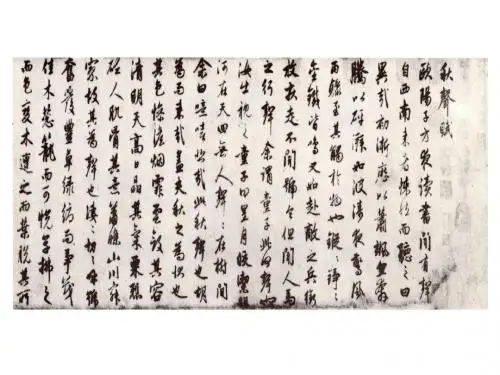 秋聲賦
歐陽子方夜讀書聞有聲
自西南来者悚然而聽之曰
異哉初淅瀝以蕭颯忽奔
騰以砰湃如波濤夜驚風
雨驟至其觸於物也鏦々錚々
金鐵皆鳴又如赴敵之兵銜
枚疾走不聞號令但聞人馬
之行聲余謂童子此何聲也
汝出視之童子曰星月皎潔明
河在天四無人聲々在樹間
余曰噫嘻悲哉此秋聲也胡
為而来哉蓋夫秋之為状也
其色惨淡烟霏雲斂其容
清明天高日晶其氣栗冽
砭人肌骨其意蕭條山川寂
寥故其為聲也淒々切々呼號
奮發豐草緑縟而争茂
佳木葱蘢而可悅草拂之
而色變木遭之而葉脱其所